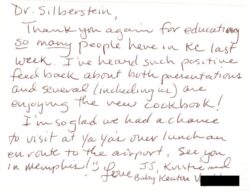 Dr. Silberstein,
Thank you again for educating
so many people here in KC last
week. I've heard such positive
feedback about both presentations
and several (including us) are
enjoying the new cookbook!
I'm so glad we had a chance
to visit at Ya Ya's over lunch on
en route to the airport. See you
in Memphis! Love, JJ, Kristie and
Kenton